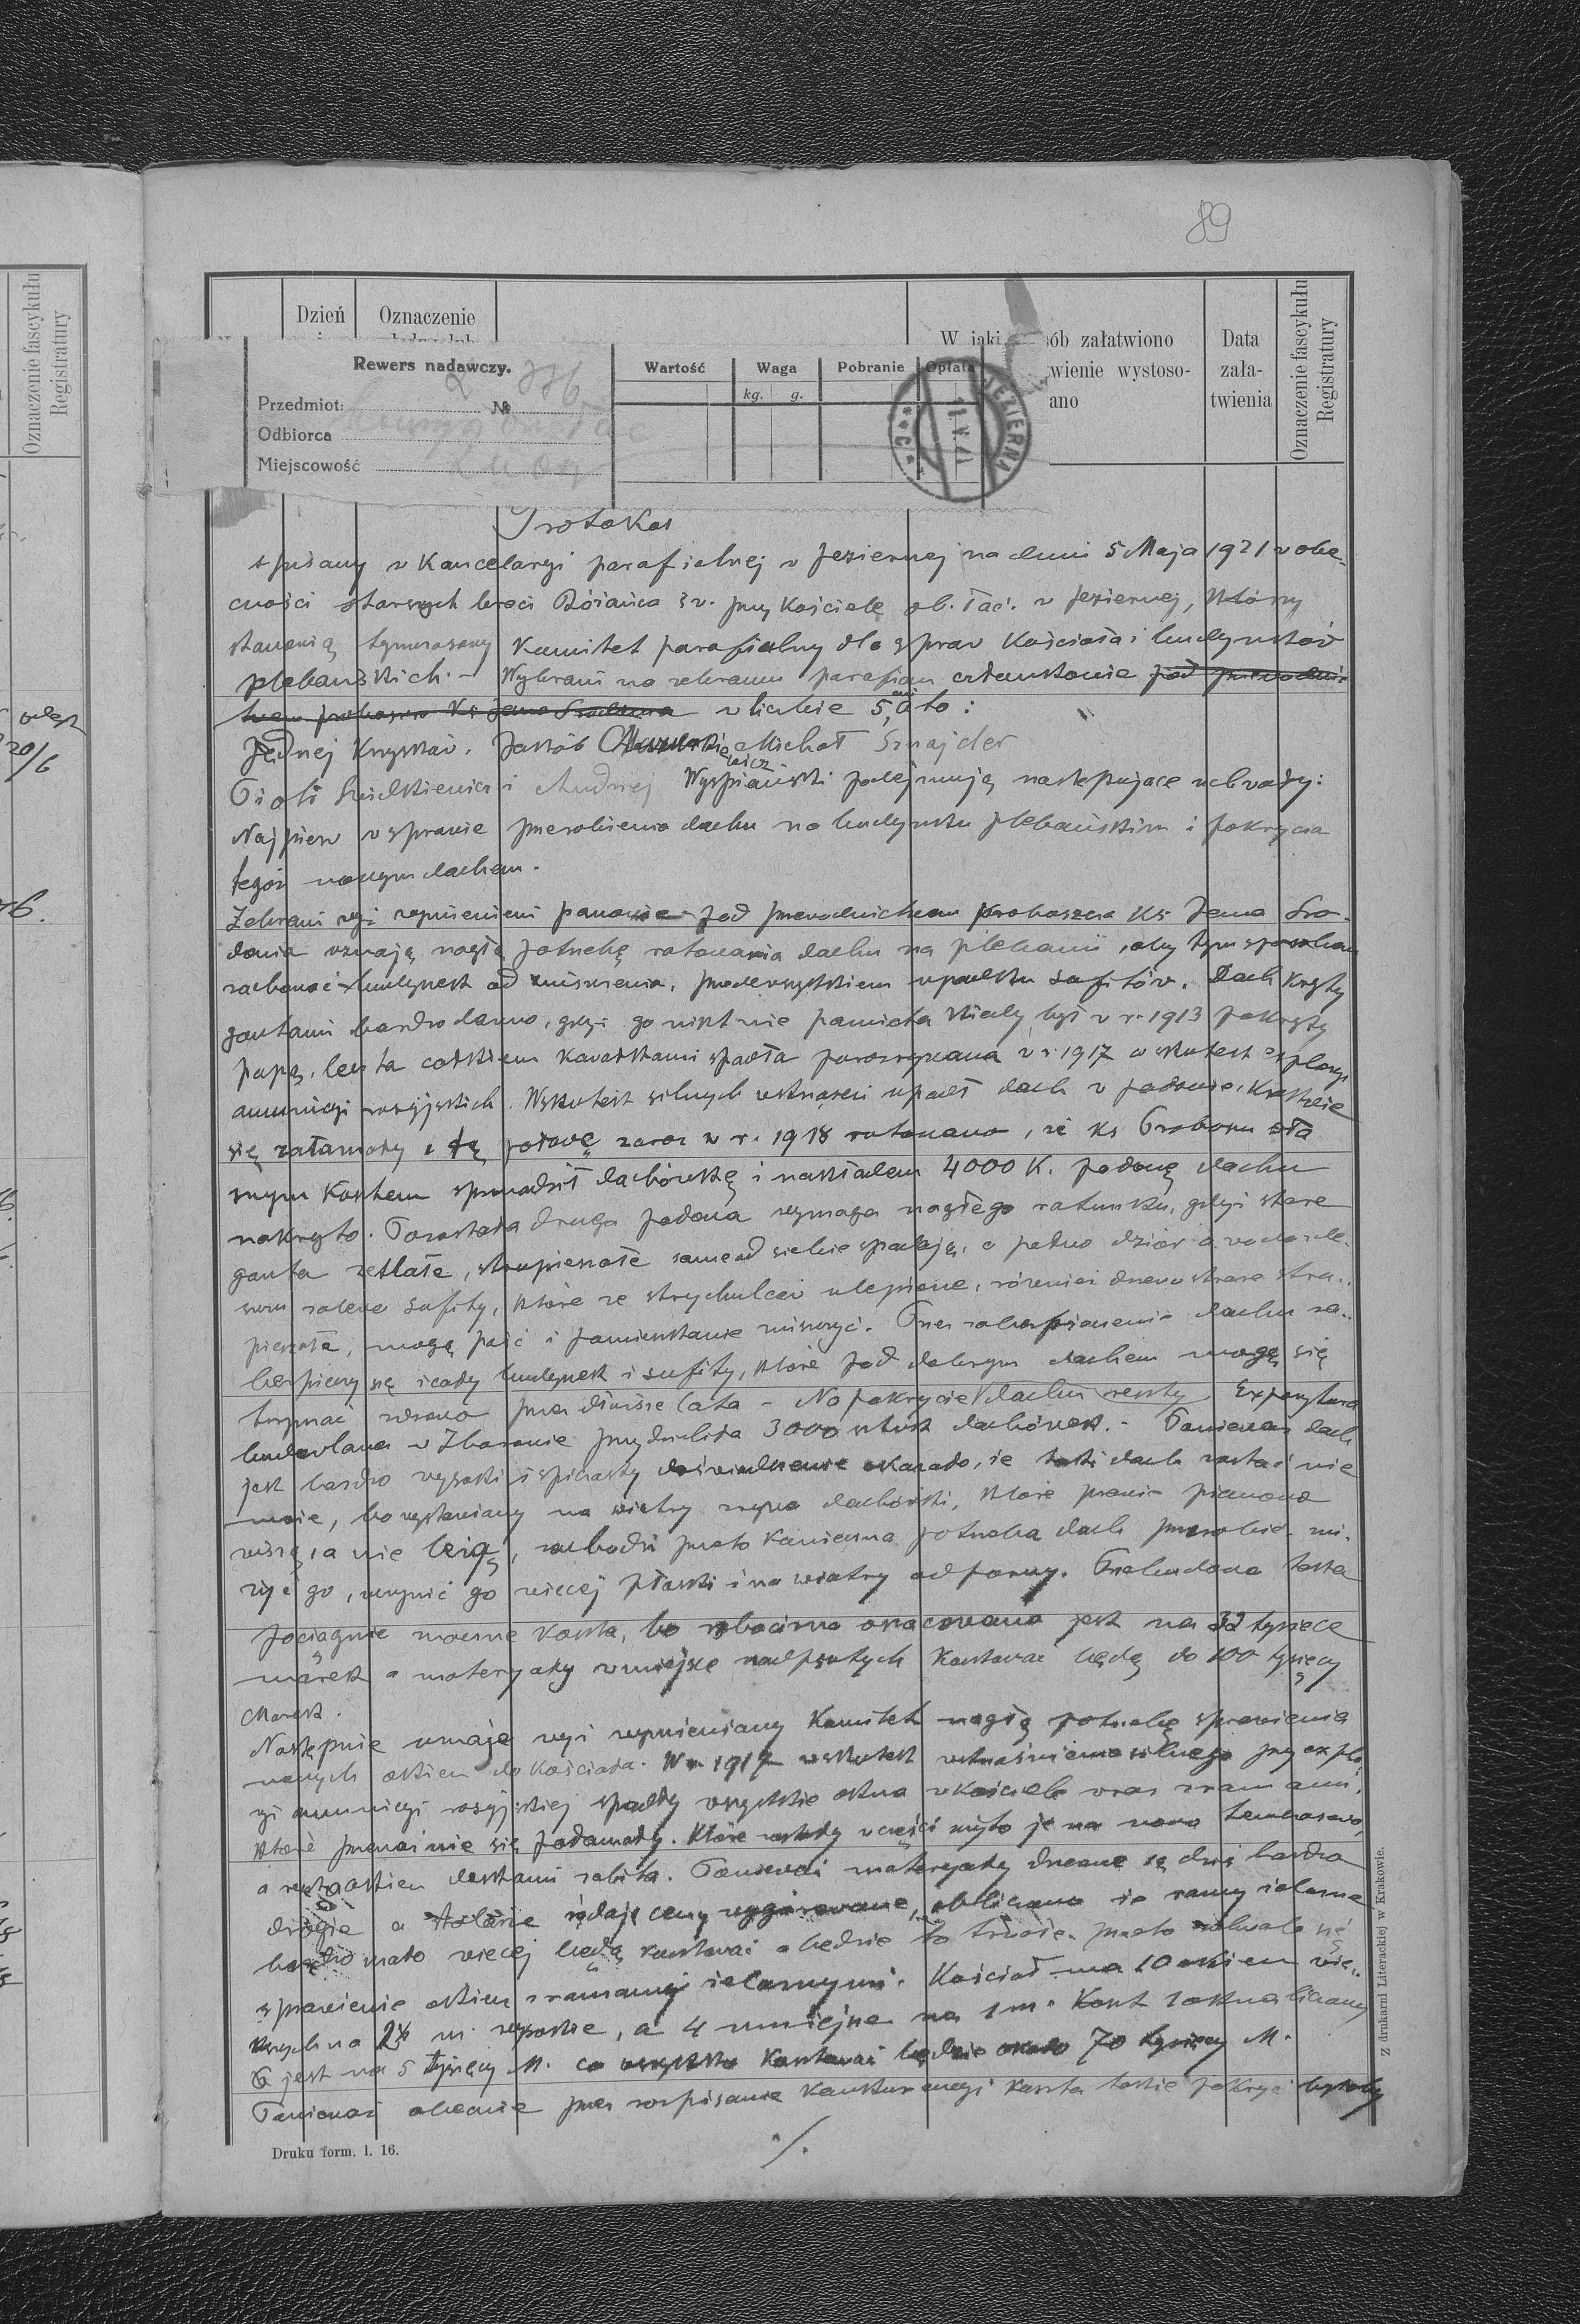 89
Dzień
Oznaczenie
W jaki sób załatwiono
wienie wystoso-
ano
Data
zała-
twienia
Oznaczenie fascykułu
Registratury
Oznaczenie fascykułu
Registratury
Rewers nadawczy. 776
Przedmiot: №
Odbiorca
Miejscowość
Wartość
Waga
kg. g.
Pobranie
Opłata
JEZIERNA
**C**
Protokół
spisany w Kancelaryi parafialnej w Jeziernej na dniu 5 Maja 1921 w obe-
cności starszych braci Różańca św. przy Kościele ob. łać. w Jeziernej, którzy
stanowią tymczasowy Komitet parafialny dla spraw Kościoła i budynków
plebańskich. - Wybrani na zebraniu parafian członkowie pod przewodnic-
twem proboszcza Ks w liczbie 5, a to:
Jędrzej Krzyśków, Jakób Michał Sznajder
Piotr i Andrzej Wyspiański podejmują następujące uchwały:
Najpierw w sprawie przerobienia dachu na budynku plebańskim i pokrycia
tegoż nowym dachem.
Zebrani wyż wymienieni panowie pod przewodnictwem proboszcza Ks Jana
uznają nagłą potrzebę ratowania dachu na plebanii, aby tym sposobem
zachować budynek od zniszczenia, przedewszystkiem upadku sufitów. Dach kryty
gontami bardzo dawno, gdyż go nikt nie pamięta kiedy, był w r. 1913 pokryty
papą, lecz ta całkiem kawałkami spadła porozrywana w r. 1917 wskutek explozyi
amunicyi rosyjskich. Wskutek silnych wstrząśeń upadł dach w połowie, krokwie
się załamały i tę połowę zaraz w r. 1918 ratowano, że Ks Proboszcz wła
snym kosztem sprowadził dachówkę i nakładem 4000 K. połowę dachu
nakryto. Pozostała druga połowa wymaga nagłego ratunku, gdyż stare
gonta zetlałe, strupieszałe same od siebie spadają, a pełno dziór a woda de-
szczu zalewa sufity, które ze strychulców ulepione, również drzewo stare stru-
pieszałe, mogą paść i pomieszkanie zniszczyć. Przez zabezpieczenie dachu za-
bezpieczy się i cały budynek i sufity, które pod dobrym dachem mogą się
trzymać zdrowo przez dłuższe lata - Na pokrycie dachu reszty Expozytura
budowlana w Zbarażu przydzieliła 3000 sztuk dachówek. - Ponieważ dach
jest bardzo wysoki i spiczasty doświadczenie okazało, że taki dach zostać nie
może, bo wystawiany na wiatry zrywa dachówki, które prawie pionowo
wiszą, a nie leżą, zachodzi przeto konieczna potrzeba dach przerobić zni-
żyć go, uczynić go więcej płaski i na wiatry odporny. Przebudowa taka
pociągnie znaczne koszta, bo robocizna oszacowana jest na 32 tysiące
marek a materyały w miejsce nadpsutych kosztować będą do 100 tysięcy
Marek.
Następnie uznaje wyż wymieniany Komitet nagłą potrzebę sprawienia
nowych okien do Kościoła. W r. 1917 wskutek wstrząśnienia silnego przy explo
zyi amunicyi rosyjskiej spadły wszystkie okna w kościele wraz z ramami,
które przeważnie się połamały. Które w części zbito je na nowo tymczasowo,
a reszta okien deskami zabita. Ponieważ materyały drzewne są dziś bardzo
drogie a stolarze żądają ceny wygórowane, obliczono że ramy żelazne
bardzo mało więcej będą kosztować a będzie to trwałe. przeto uchwala się
sprawienie okien z ramami żelaznymi. Kościół ma 10 okien wię-
kszych na 2½ m. wysokie, a 4 mniejsze na 1 m. Koszt 1 okna liczony
jest na 5 tysięcy M. co wszystko kosztować będzie około 70 tysięcy M.
Ponieważ obecnie przez rozpisanie konkurencyi koszta takie pokryć byłoby
./.
Druku form. l. 16.
Z drukarni Literackiej w Krakowie.